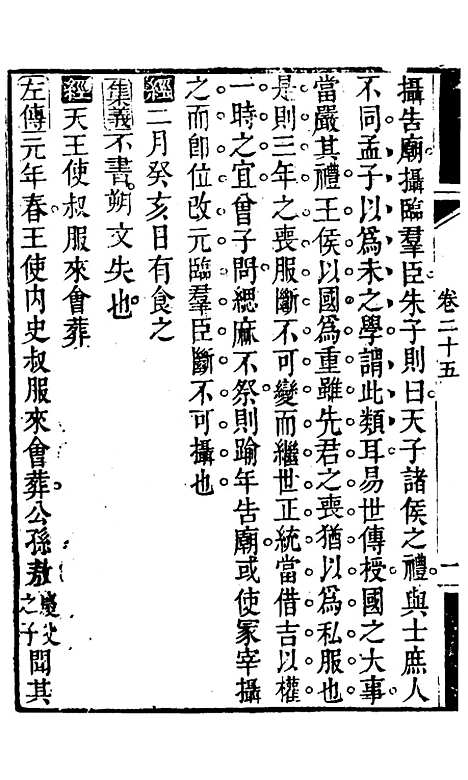 卷二十五
一
攝告廟攝臨羣臣朱子則曰天子諸侯之禮與士庶人
不同孟子以爲未之學謂此類耳易世傳授國之大事
當嚴其禮王侯以國爲重雖先君之喪猶以爲私服也
是則三年之喪服斷不可變而繼世正統當借吉以權
一時之宜曾子問緦麻不祭則踰年告廟或使冢宰攝
之而卽位改元臨羣臣斷不可攝也
經二月癸亥日有食之
集義不書朔文失也
經天王使叔服來會葬
左傳元年春王使内史叔服來會葬公孫敖慶父之子聞其